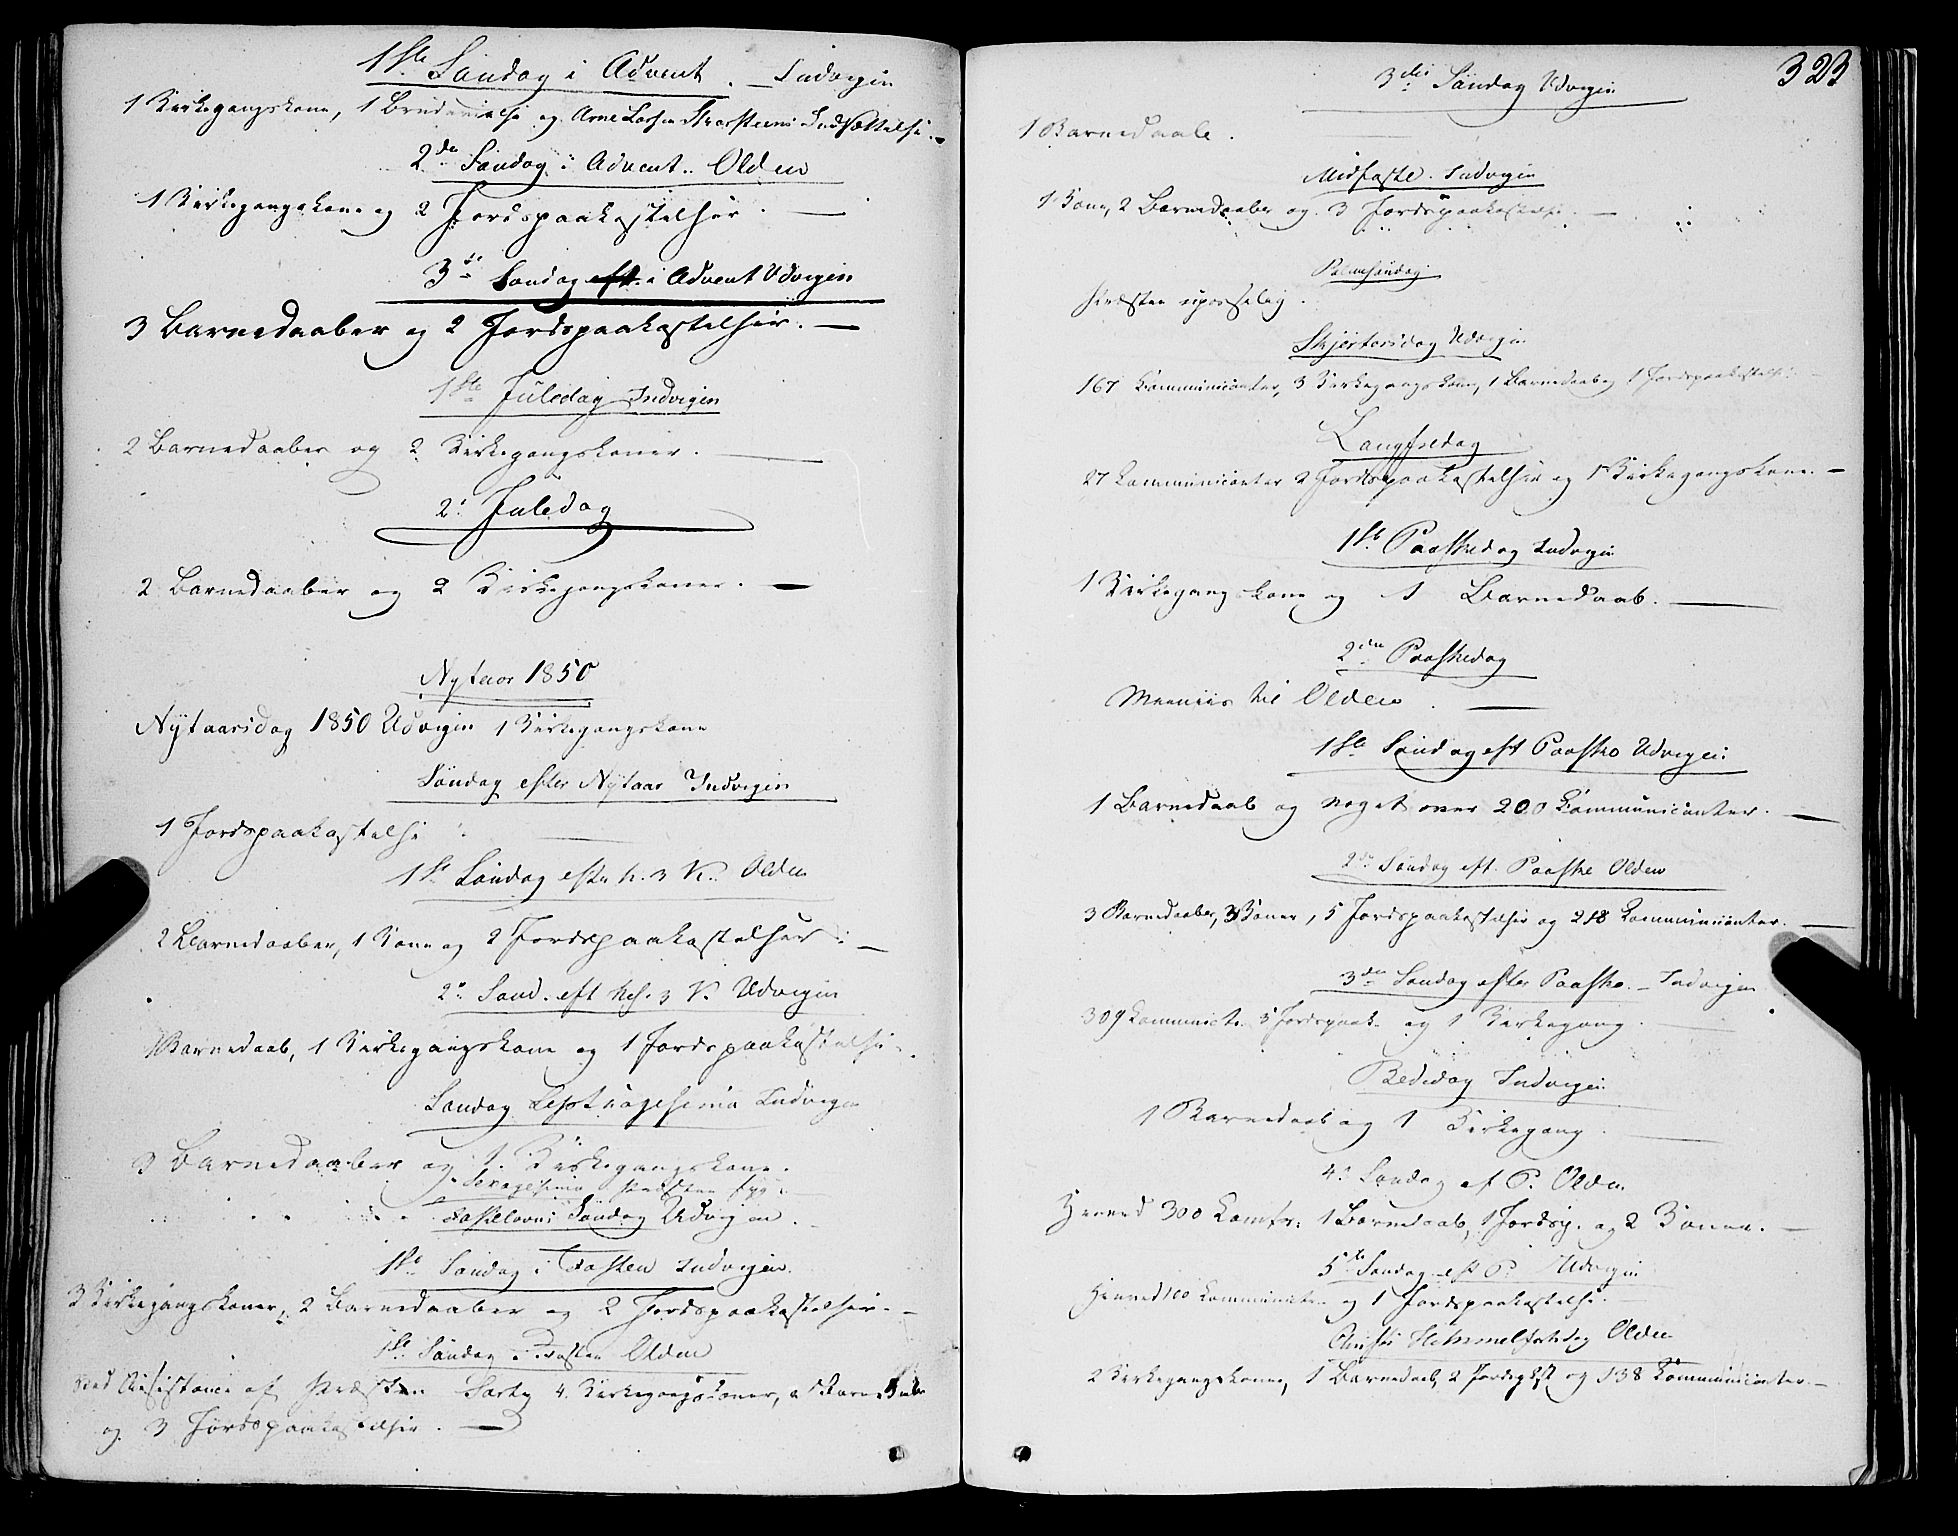 1ste Søndag i Advent. — Indvigen
1 Kirkegangskone, 1 Brudevielse og Arne Larsen Indsættelse. —
2de Søndag i Advent. Olden
1 Kirkegangskone og 2 Jordspaakastelser. —
3de Søndag eft. i Advent Udvigen
3 Barnedaaber og 2 Jordspaakastelser. —
1ste Juledag Indvigen
2 Barnedaaber og 2 Kirkegangskoner. —
2. Juledag
2 Barnedaaber og 2 Kirkegangskoner. —
Nytaar 1850
Nytaarsdag 1850 Udvigen 1 Kirkegangskone
Søndag efter Nytaar Indvigen
1 Jordspaakastelse
1ste Søndag efter h. 3 K. Olden
2 Barnedaaber, 1 Kone og 2 Jordspaakastelser. —
2. Sønd. eft hel. 3 K. Udvigen
1 Barnedaab, 1 Kirkegangskone og 1 Jordspaakastelse.
Søndag Septuagesima Indvigen
3 Barnedaaber og 1. Kirkegangskone.
Sexagesima Præsten syg.
Fastelavns Søndag Udvigen.
1ste Søndag i Fasten Indvigen.
3 Kirkegangskoner, 2 Barnedaaber og 2 Jordspaakastelser. —
Søndag i Fasten Olden
Ved Assistance af Præsten 4. Kirkegangskoner,
og 3 Jordspaakastelser. —
323
3die Søndag Udvigen
1 Barnedaab.
Midfaste. Indvigen
1 Kone, 2 Barnedaaber og 3 Jordspaakastelser. —
Palmesøndag.
Præsten upasselig.
Skjertorsdag Udvigen
167 Communicanter, 3 Kirkegangskoner, 1 Barnedaab og 1 Jordspaakastelse.
Langfredag
27 Communicanter 2 Jordspaakastelser og 1 Kirkegangskone. —
1ste Paaskedag Indvigen
1 Kirkegangskone og 1 Barnedaab. —
2den Paaskedag
til Olden. —
1ste Søndag eft Paaske Udvigen
1 Barnedaab og noget over 200 Communicanter. —
2den Søndag eft. Paaske Olden
3 Barnedaaber, 3 Koner, 5 Jordspaakastelser og 218 Communicanter. —
3die Søndag efter Paaske. — Indvigen
309 Communict. 3 Jordspaak. og 1 Kirkegang. —
Bededag Indvigen
1 Barnedaab og 1 Kirkegang. —
4. Søndag ef P. Olden
Henved 300 1 Barnedaab, 1 Jordsp. og 2 Koner. —
5te Søndag eft P. Udvigen
Henved 100 Communicter og 1 Jordspaakastelse.
Christi Himmelfartsdag Olden
2 Kirkegangskoner, 1 Barnedaab, 2 og 138 Communicanter. —